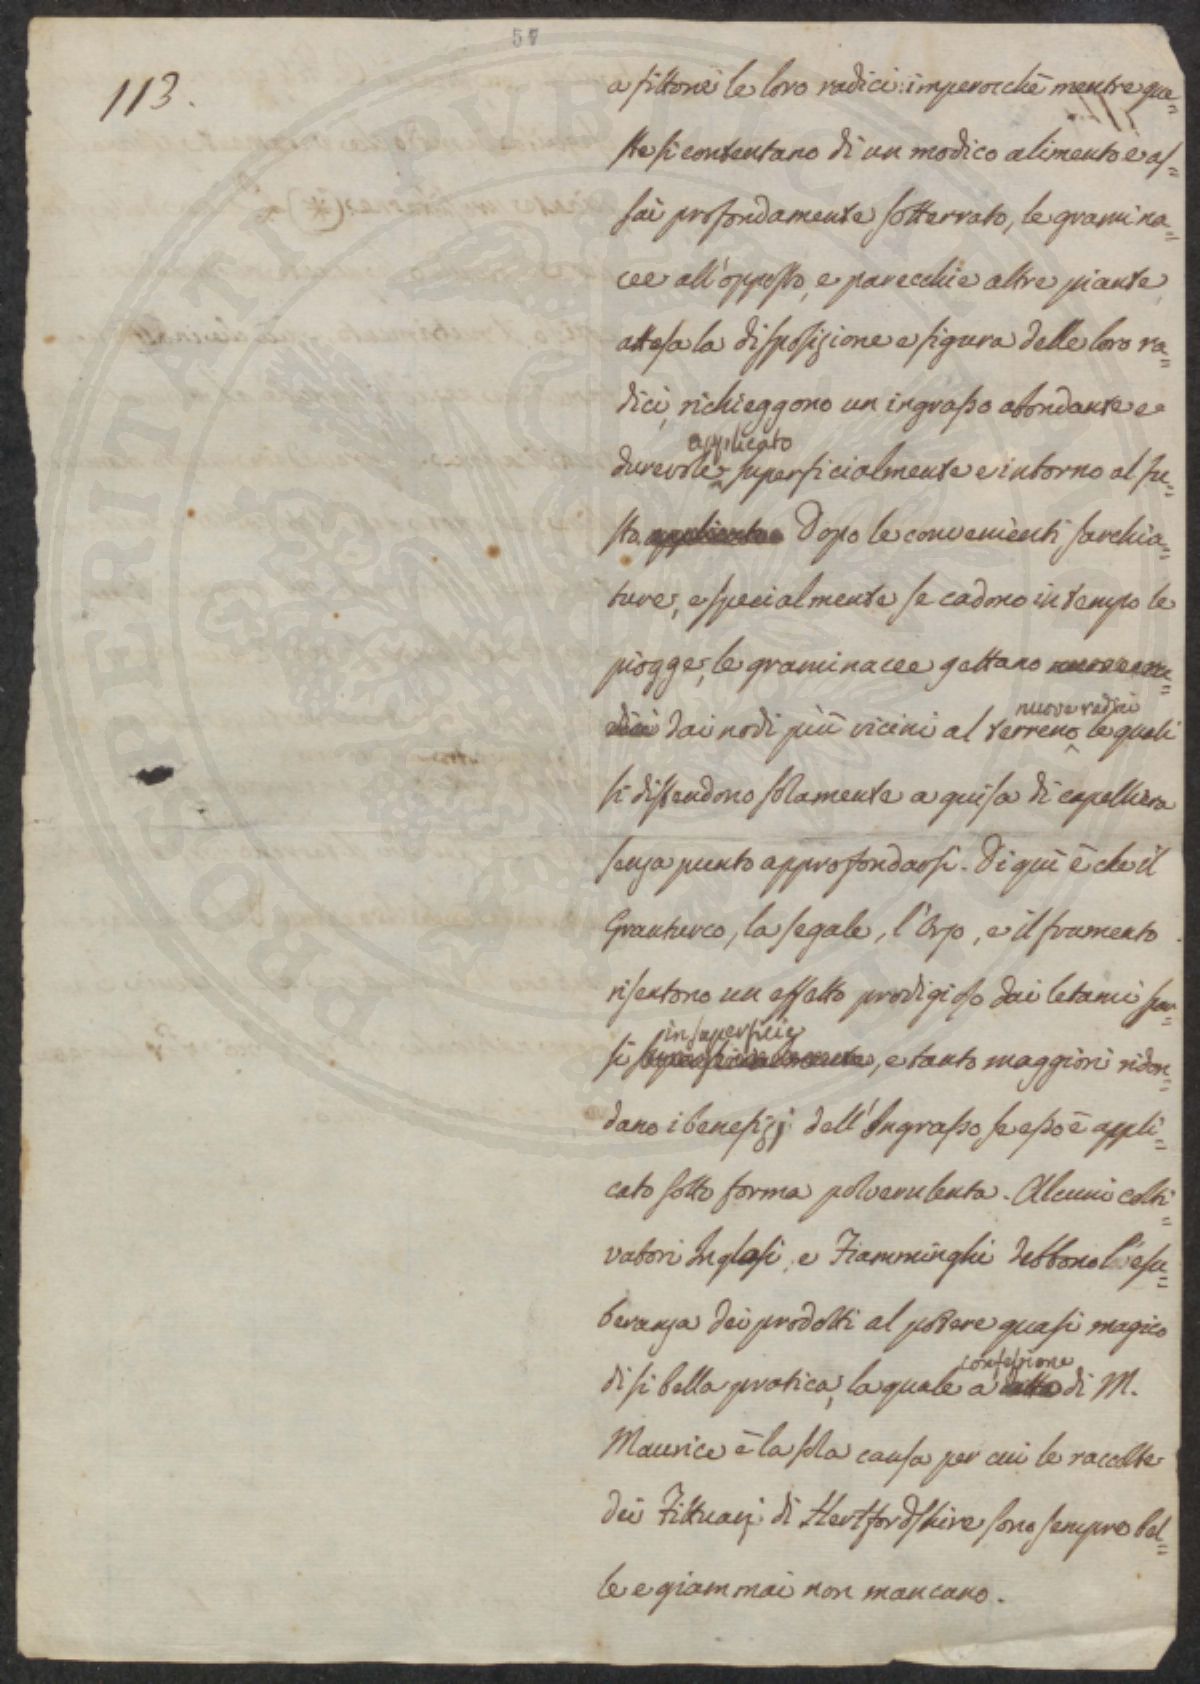 57
113.
a fittone le loro radici: imperocchè mentre que=
ste si contentano di un modico alimento e as=
sai profondamente sotterrato, le gramina=
cee all'opposto, e parecchie altre piante,
attesa la disposizione e figura delle loro ra=
dici, richieggono un ingrasso abondante e
applicato
durevole superficialmente e intorno al fu=
sto. applicato Dopo le convenienti sarchia=
ture, e specialmente se cadono in tempo le
piogge, le graminacee gettano nuove ra=
nuove radici
dici dai nodi più vicini al terreno le quali
si distendono solamente a guisa di capelliera
senza punto approfondarsi. Di quì è che il
Granturco, la segale, l'Orzo, e il frumento
risentono un effetto prodigioso dai letami spar=
in superficie
si superficialmente, e tanto maggiori ridon=
dano i benefizj dell'Ingrasso se esso è appli=
cato sotto forma polverulenta. Alcuni colti=
vatori Inglesi, e Fiamminghi debbono l'esu=
beranza dei prodotti al potere quasi magico
confessione
di sì bella pratica, la quale a detta di M.
Maurice è la sola causa per cui le raccolte
dei Fittuarj di Hertfordshire sono sempre bel=
le e giammai non mancano.
PROSPERITATI PUBLICAE